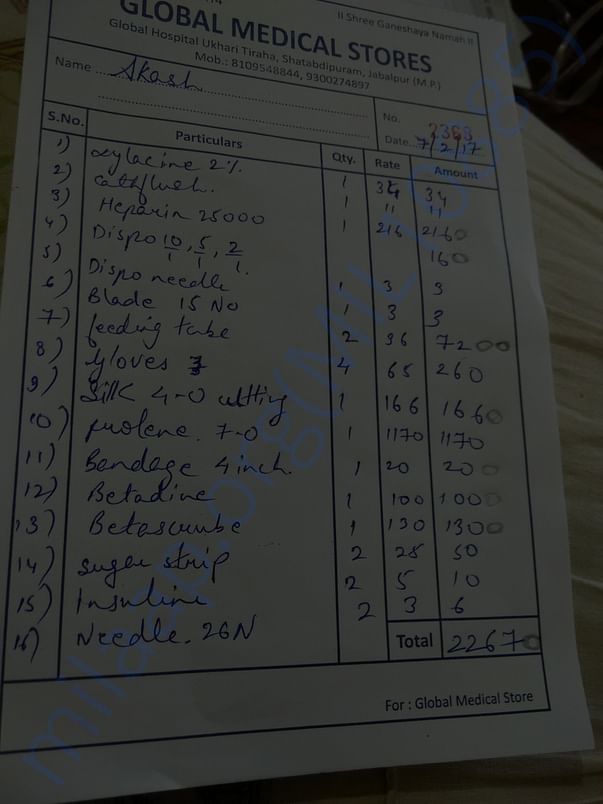 II Shree Ganeshaya Namah II
GLOBAL MEDICAL STORES
Global Hospital Ukhari Tiraha, Shatabdipuram, Jabalpur (M.P.)
Mob.: 8109548844, 9300274897
Name Akash
No. 2368
Date 7/2/17
S.No. Particulars Qty. Rate Amount
1) xylacine 2% 1 34 34
2) cathflush. 1 11 11
3) Heparin 25000 1 216 2160
4) Dispo 10/1, 5/1, 2/1. 160
5) Dispo needle 1 3 3
6) Blade 15 No 1 3 3
7) feeding tube 2 36 7200
8) gloves 4 65 260
9) Silk 4-0 cutting 1 166 1660
10) prolene. 7-0 1 1170 1170
11) Bandage 4 inch. 1 20 200
12) Betadine 1 100 1000
13) Betascrube 1 130 1300
14) suger strip 2 28 50
15) Insuline 2 5 10
16) Needle. 26N 2 3 6
Total 22670
For : Global Medical Store
milaap.org(MIL